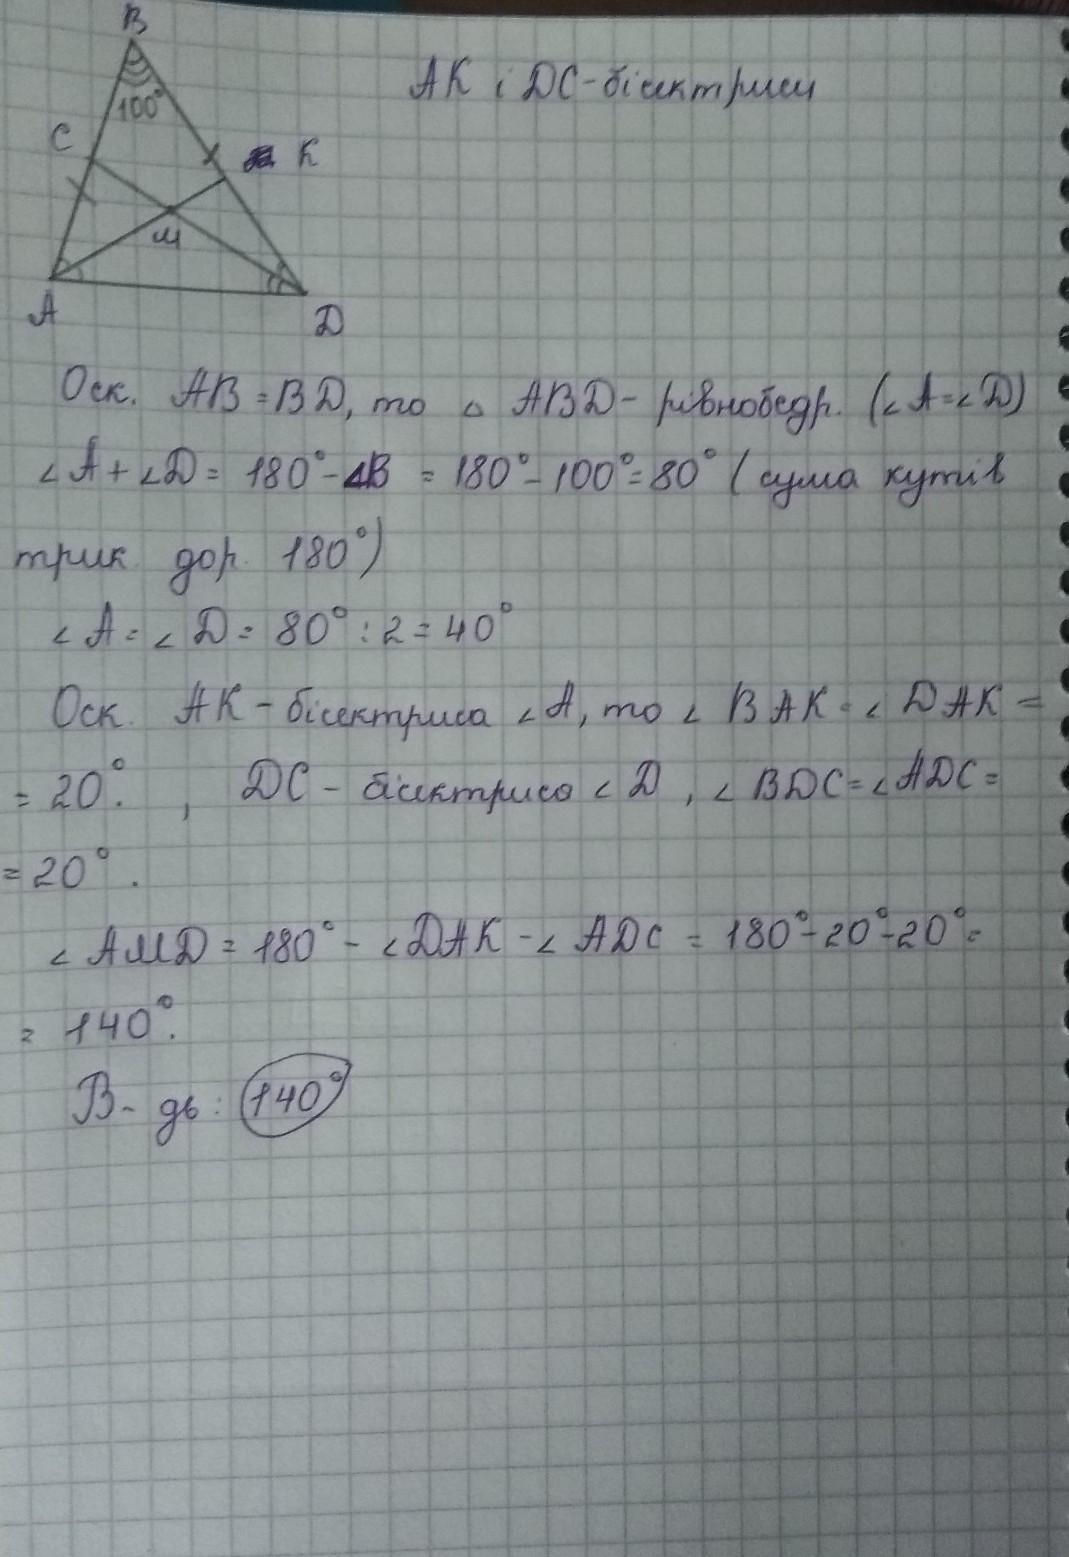 В
АК і DC-бісектриси
100°
С
К
М
А
D
Оск. АВ = ВD, то △ ABD - рівнобедр. (∠A=∠D)
∠A+∠D= 180°-∠B = 180°-100°=80° (сума кутів
трик. дор. 180°)
∠A=∠D= 80°:2=40°
Оск. АК - бісектриса ∠A, то ∠BAK=∠DAK=
=20°. , DC - бісектриса ∠D, ∠BDC=∠ADC=
=20°.
∠AMD=180°-∠DAK-∠ADC = 180°-20°-20°=
= 140°.
В-дь: 140°